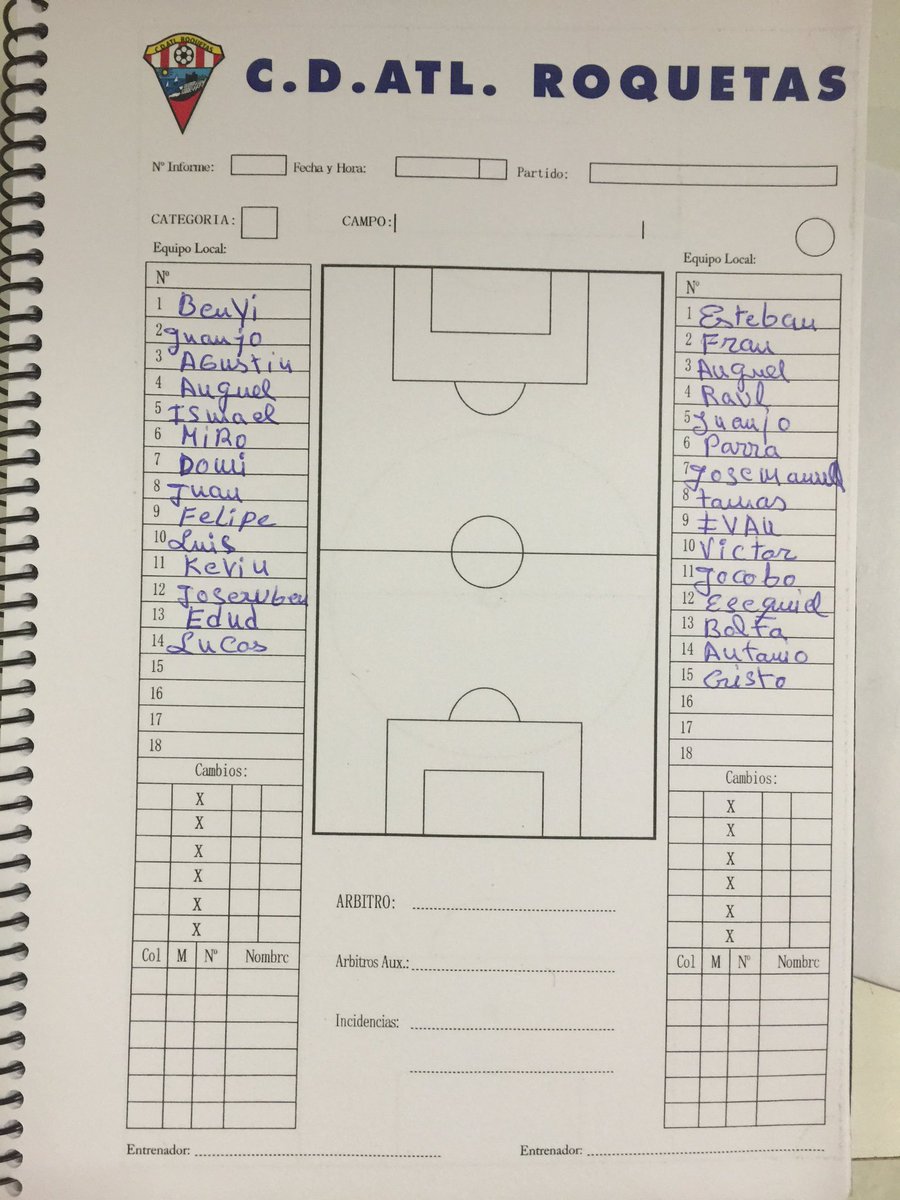 C.D.ATL. ROQUETAS
C.D. ATL. ROQUETAS
Nº Informe: Fecha y Hora: Partido:
CATEGORIA: CAMPO:
Equipo Local:
Nº
1 Benyi
2 Juanjo
3 AGustin
4 Anguel
5 ISmael
6 MiRo
7 Domi
8 Juan
9 Felipe
10 Luis
11 Kevin
12 Joseruben
13 Edud
14 Lucas
15
16
17
18
Cambios:
X
X
X
X
X
X
Col M Nº Nombre
ARBITRO:
Arbitros Aux.:
Incidencias:
Equipo Local:
Nº
1 Esteban
2 Fran
3 Anguel
4 Raul
5 Juanjo
6 Parra
7 Jose manuel
8 tamas
9 IVAN
10 Victor
11 Jocobo
12 Esequiel
13 Bolta
14 Antonio
15 Cristo
16
17
18
Cambios:
X
X
X
X
X
X
Col M Nº Nombre
Entrenador: Entrenador: